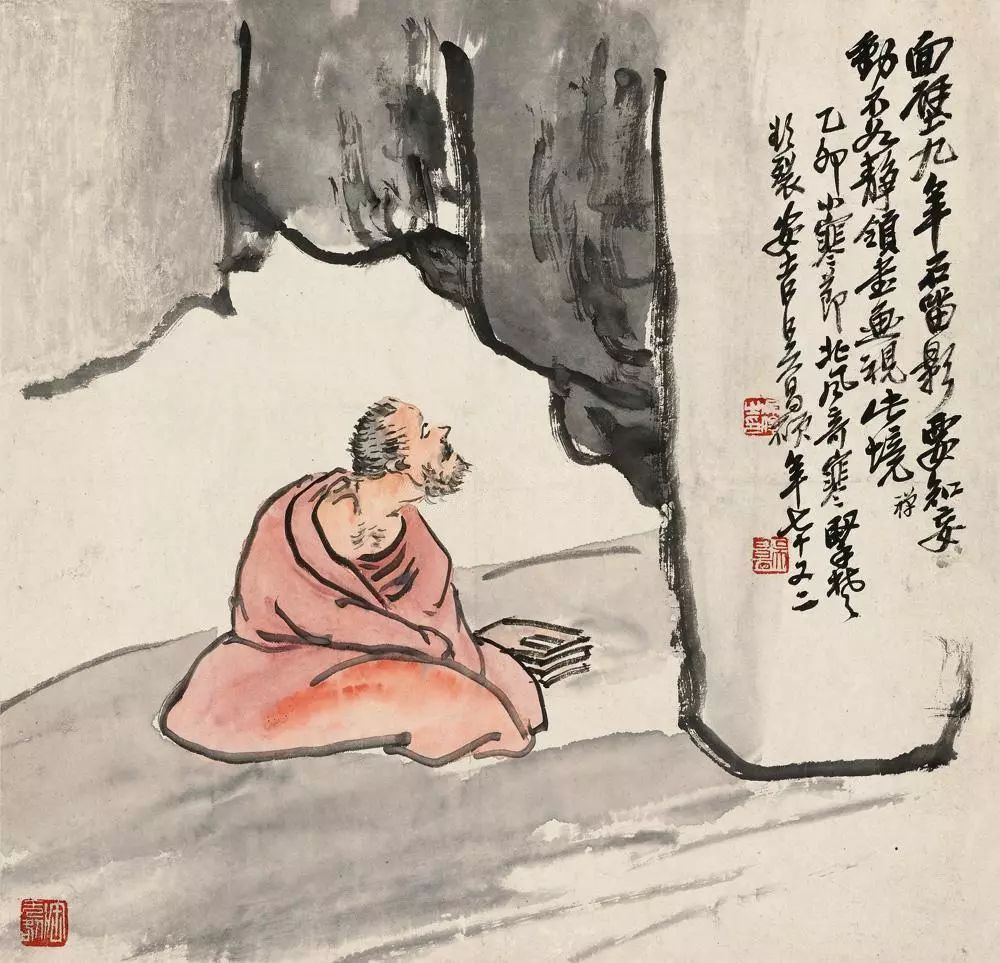 面壁九年石留影要知妄
動不如靜領盡畫視此境
禪
乙卯小寒節北風奇寒
欲裂安吉吳昌碩年七十又二